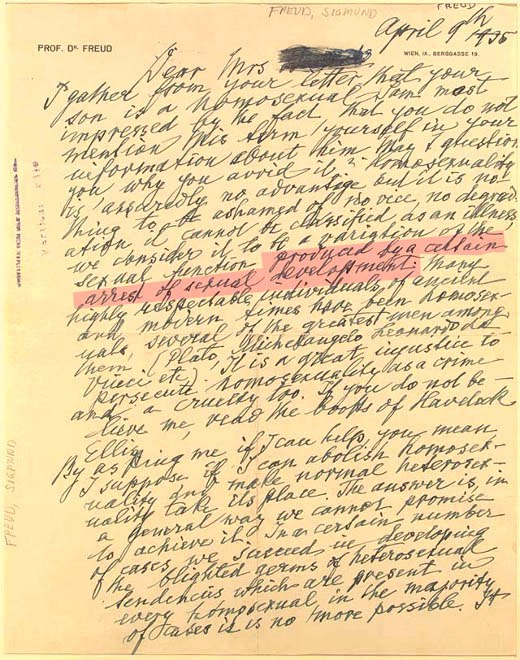 FREUD, SIGMUND
FREUD
April 9th 1935
PROF. DR. FREUD
WIEN, IX., BERGGASSE 19.
Dear Mrs
I gather from your letter that your
son is a homosexual. I am most
impressed by the fact, that you do not
mention this term yourself in your
information about him. May I question
you why you avoid it? Homosexuality
is assuredly no advantage but it is no-
thing to be ashamed of, no vice, no degrad-
ation, it cannot be classified as an illness,
we consider it to be a variation of the
sexual function produced by a certain
arrest of sexual development. Many
highly respectable individuals of ancient
and modern times have been homosex-
uals, several of the greatest men among
them. (Plato, Michelangelo, Leonardo da
Vinci etc) It is a great injustice to
persecute homosexuality as a crime
and a cruelty too. If you do not be-
lieve me, read the books of Havelock
Ellis.
By asking me if I can help, you mean
I suppose, if I can abolish homosex-
uality and make normal heterosex-
uality take its place. The answer is, in
a general way we cannot promise
to achieve it. In a certain number
of cases we succeed in developing
the blighted germs of heterosexual
tendencies which are present in
every homosexual, in the majority
of cases it is no more possible. It
FREUD, SIGMUND